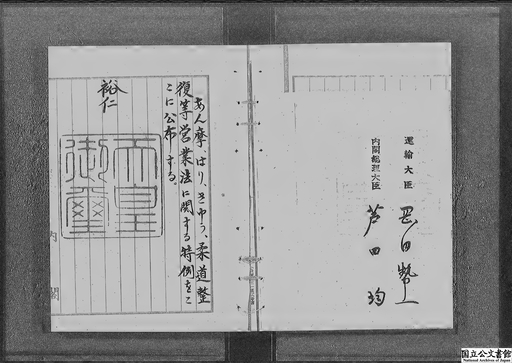 運輸大臣 岡田勢一
内閣總理大臣 芦田均
あん摩、はり、きゆう、柔道整
復等営業法に関する特例をこ
こに公布する。
裕仁
天皇
御璽
内閣
国立公文書館
National Archives of Japan